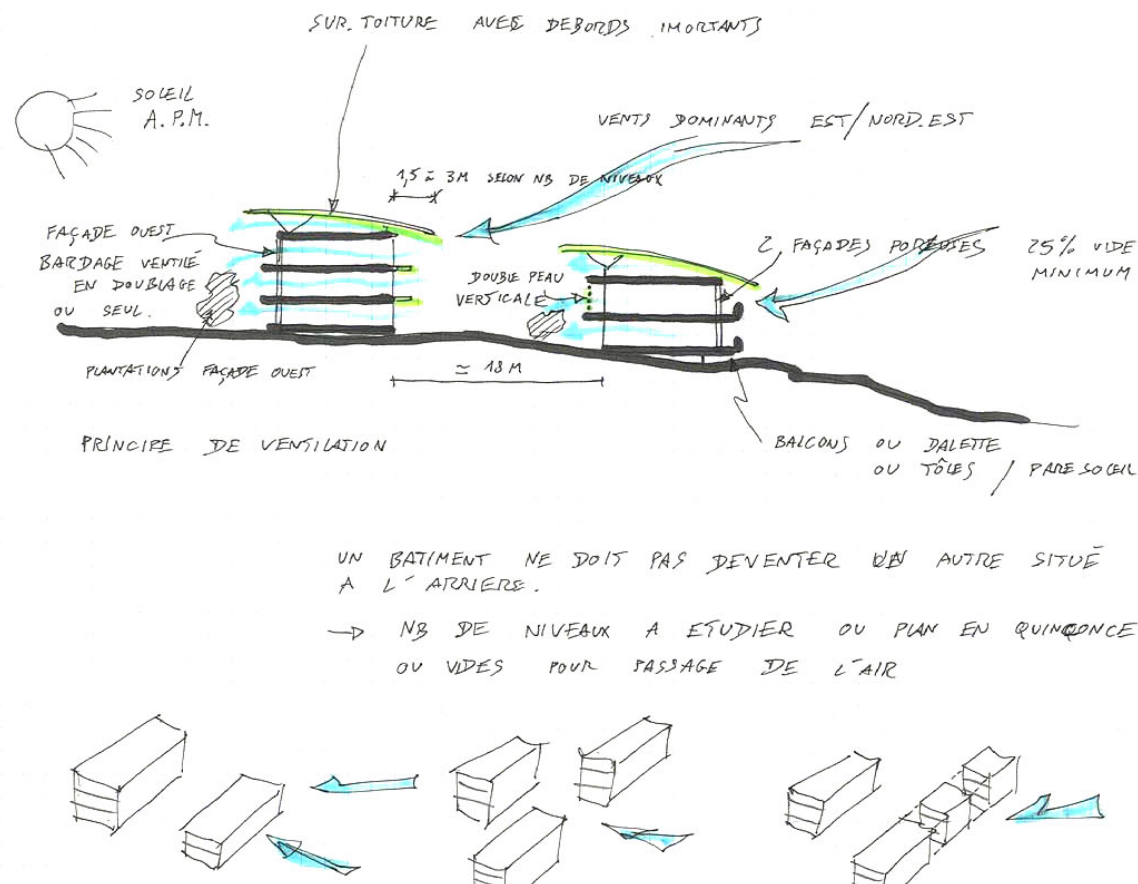 SUR.TOITURE AVEC DEBORDS IMORTANTS
SOLEIL
A.P.M.
VENTS DOMINANTS EST/NORD.EST
1,5 à 3M SELON NB DE NIVEAUX
FAÇADE OUEST
BARDAGE VENTILÉ
EN DOUBLAGE
OU SEUL.
DOUBLE PEAU
VERTICALE
2 FAÇADES POREUSES 25% VIDE
MINIMUM
PLANTATIONS FAÇADE OUEST
≃ 18 M
PRINCIPE DE VENTILATION
BALCONS OU DALETTE
OU TÔLES / PARE SOLEIL
UN BATIMENT NE DOIT PAS DEVENTER UN AUTRE SITUÉ
A L'ARRIERE.
→ NB DE NIVEAUX A ETUDIER OU PLAN EN QUINQONCE
OU VIDES POUR PASSAGE DE L'AIR